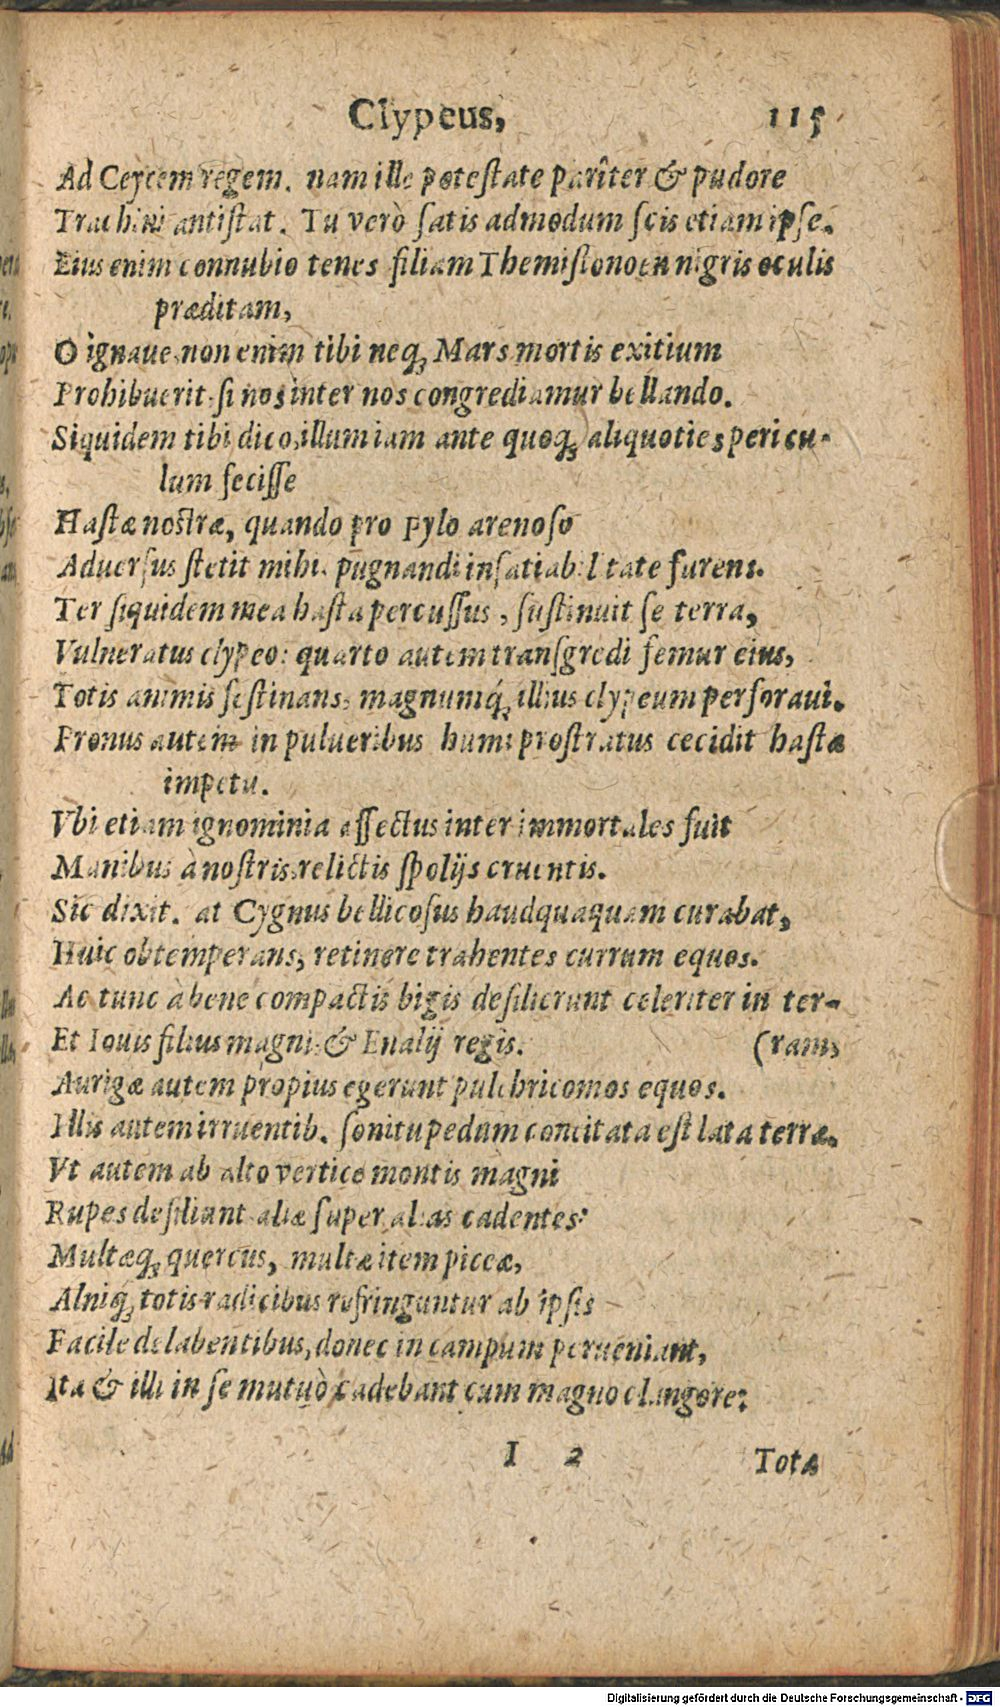 Clypeus, 115
Ad Ceycem regem. nam ille potestate pariter & pudore
Trachini antistat. Tu verò satis admodum scis etiam ipse.
Eius enim connubio tenes filiam Themistonoen nigris oculis
præditam,
O ignaue, non enim tibi neq; Mars mortis exitium
Prohibuerit, si nos inter nos congrediamur bellando.
Siquidem tibi dico, illum iam ante quoq; aliquoties pericu-
lum fecisse
Hastæ nostræ, quando pro Pylo arenoso
Aduersus stetit mihi, pugnandi insatiabilitate furens.
Ter siquidem mea hasta percussus, sustinuit se terra,
Vulneratus clypeo: quarto autem transgredi femur eius,
Totis animis festinans, magnumq́; illius clypeum perforaui.
Pronus autem in pulueribus humi prostratus cecidit hastæ
impetu.
Vbi etiam ignominia affectus inter immortales fuit
Manibus à nostris relictis spolijs cruentis.
Sic dixit. at Cygnus bellicosus haudquaquam curabat,
Huic obtemperans, retinere trahentes currum equos.
Ac tunc à bene compactis bigis desilierunt celeriter in ter-
Et Iouis filius magni, & Enalij regis. (ram,
Aurigæ autem propius egerunt pulchricomos equos.
Illis autem irruentib. sonitu pedum concitata est lata terra.
Vt autem ab alto vertice montis magni
Rupes desiliunt aliæ super alias cadentes:
Multæq; quercus, multæ item piceæ,
Alniq́; totis radicibus refringuntur ab ipsis
Facile delabentibus, donec in campum perueniant,
Ita & illi in se mutuò cadebant cum magno clangore:
I 2 Tota
Digitalisierung gefördert durch die Deutsche Forschungsgemeinschaft - DFG